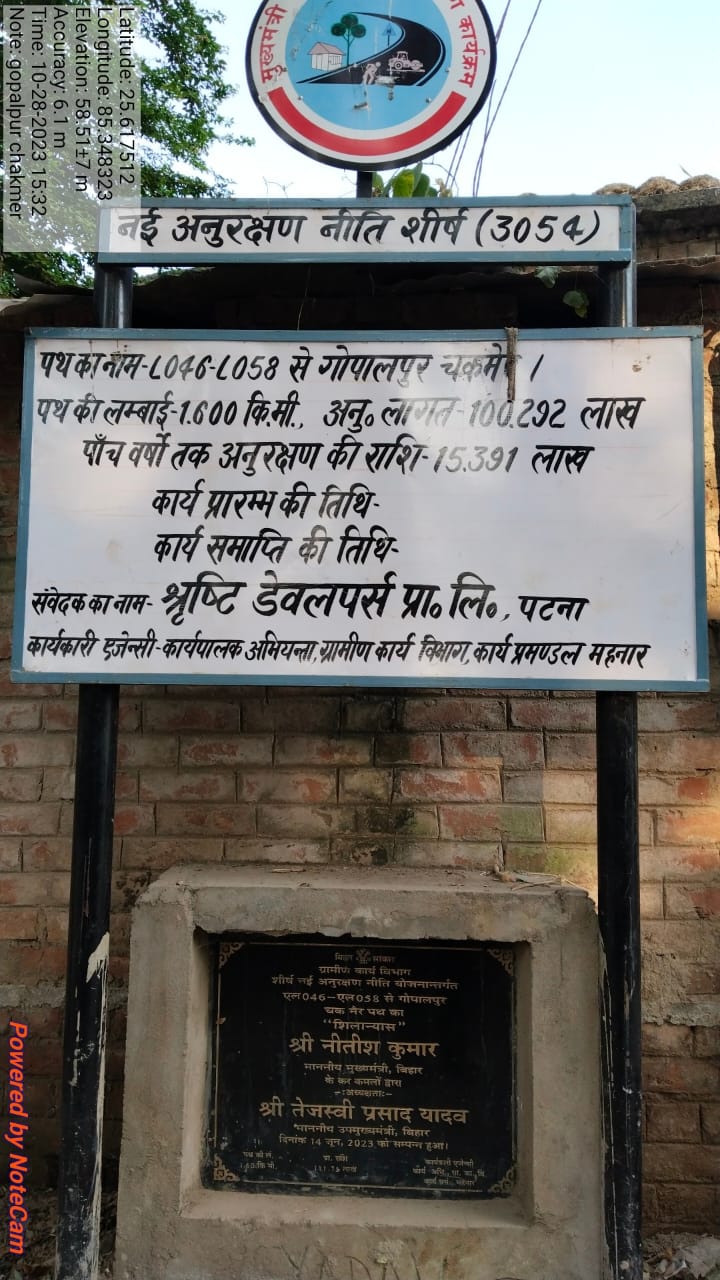 Latitude: 25.617512
Longitude: 85.348323
Elevation: 58.51±7 m
Accuracy: 6.1 m
Time: 10-28-2023 15:32
Note: gopalpur chakmer
मुख्यमंत्री
कार्यक्रम
नई अनुरक्षण नीति शीर्ष (3054)
पथ का नाम-L046-L058 से गोपालपुर चकमेर ।
पथ की लम्बाई-1.600 कि.मी., अनु॰ लागत-100.292 लाख
पाँच वर्षो तक अनुरक्षण की राशि-15.391 लाख
कार्य प्रारम्भ की तिथि-
कार्य समाप्ति की तिथि-
संवेदक का नाम- श्रृष्टि डेवलपर्स प्रा॰ लि॰, पटना
कार्यकारी एजेन्सी-कार्यपालक अभियन्ता,ग्रामीण कार्य विभाग,कार्य प्रमण्डल महनार
बिहार सरकार
ग्रामीण कार्य विभाग
शीर्ष नई अनुरक्षण नीति योजनान्तर्गत
एल046-एल058 से गोपालपुर
चक मेर पथ का
"शिलान्यास"
श्री नीतीश कुमार
माननीय मुख्यमंत्री, बिहार
के कर कमलों द्वारा
-:अध्यक्षता:-
श्री तेजस्वी प्रसाद यादव
माननीय उपमुख्यमंत्री, बिहार
दिनांक 14 जून, 2023 को सम्पन्न हुआ।
कार्यकारी एजेन्सी
Powered by NoteCam